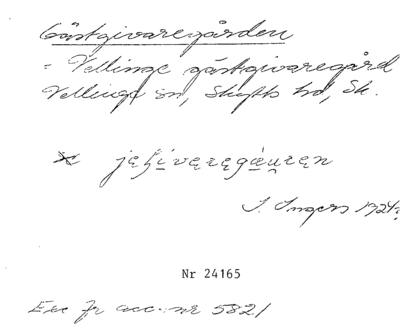 Gästgivaregården
= Vellinge gästgivaregård
Vellinge sn, Skytts hd, Sk.
I. Ingers 1924
Nr 24165
Exc fr acc.nr 5821